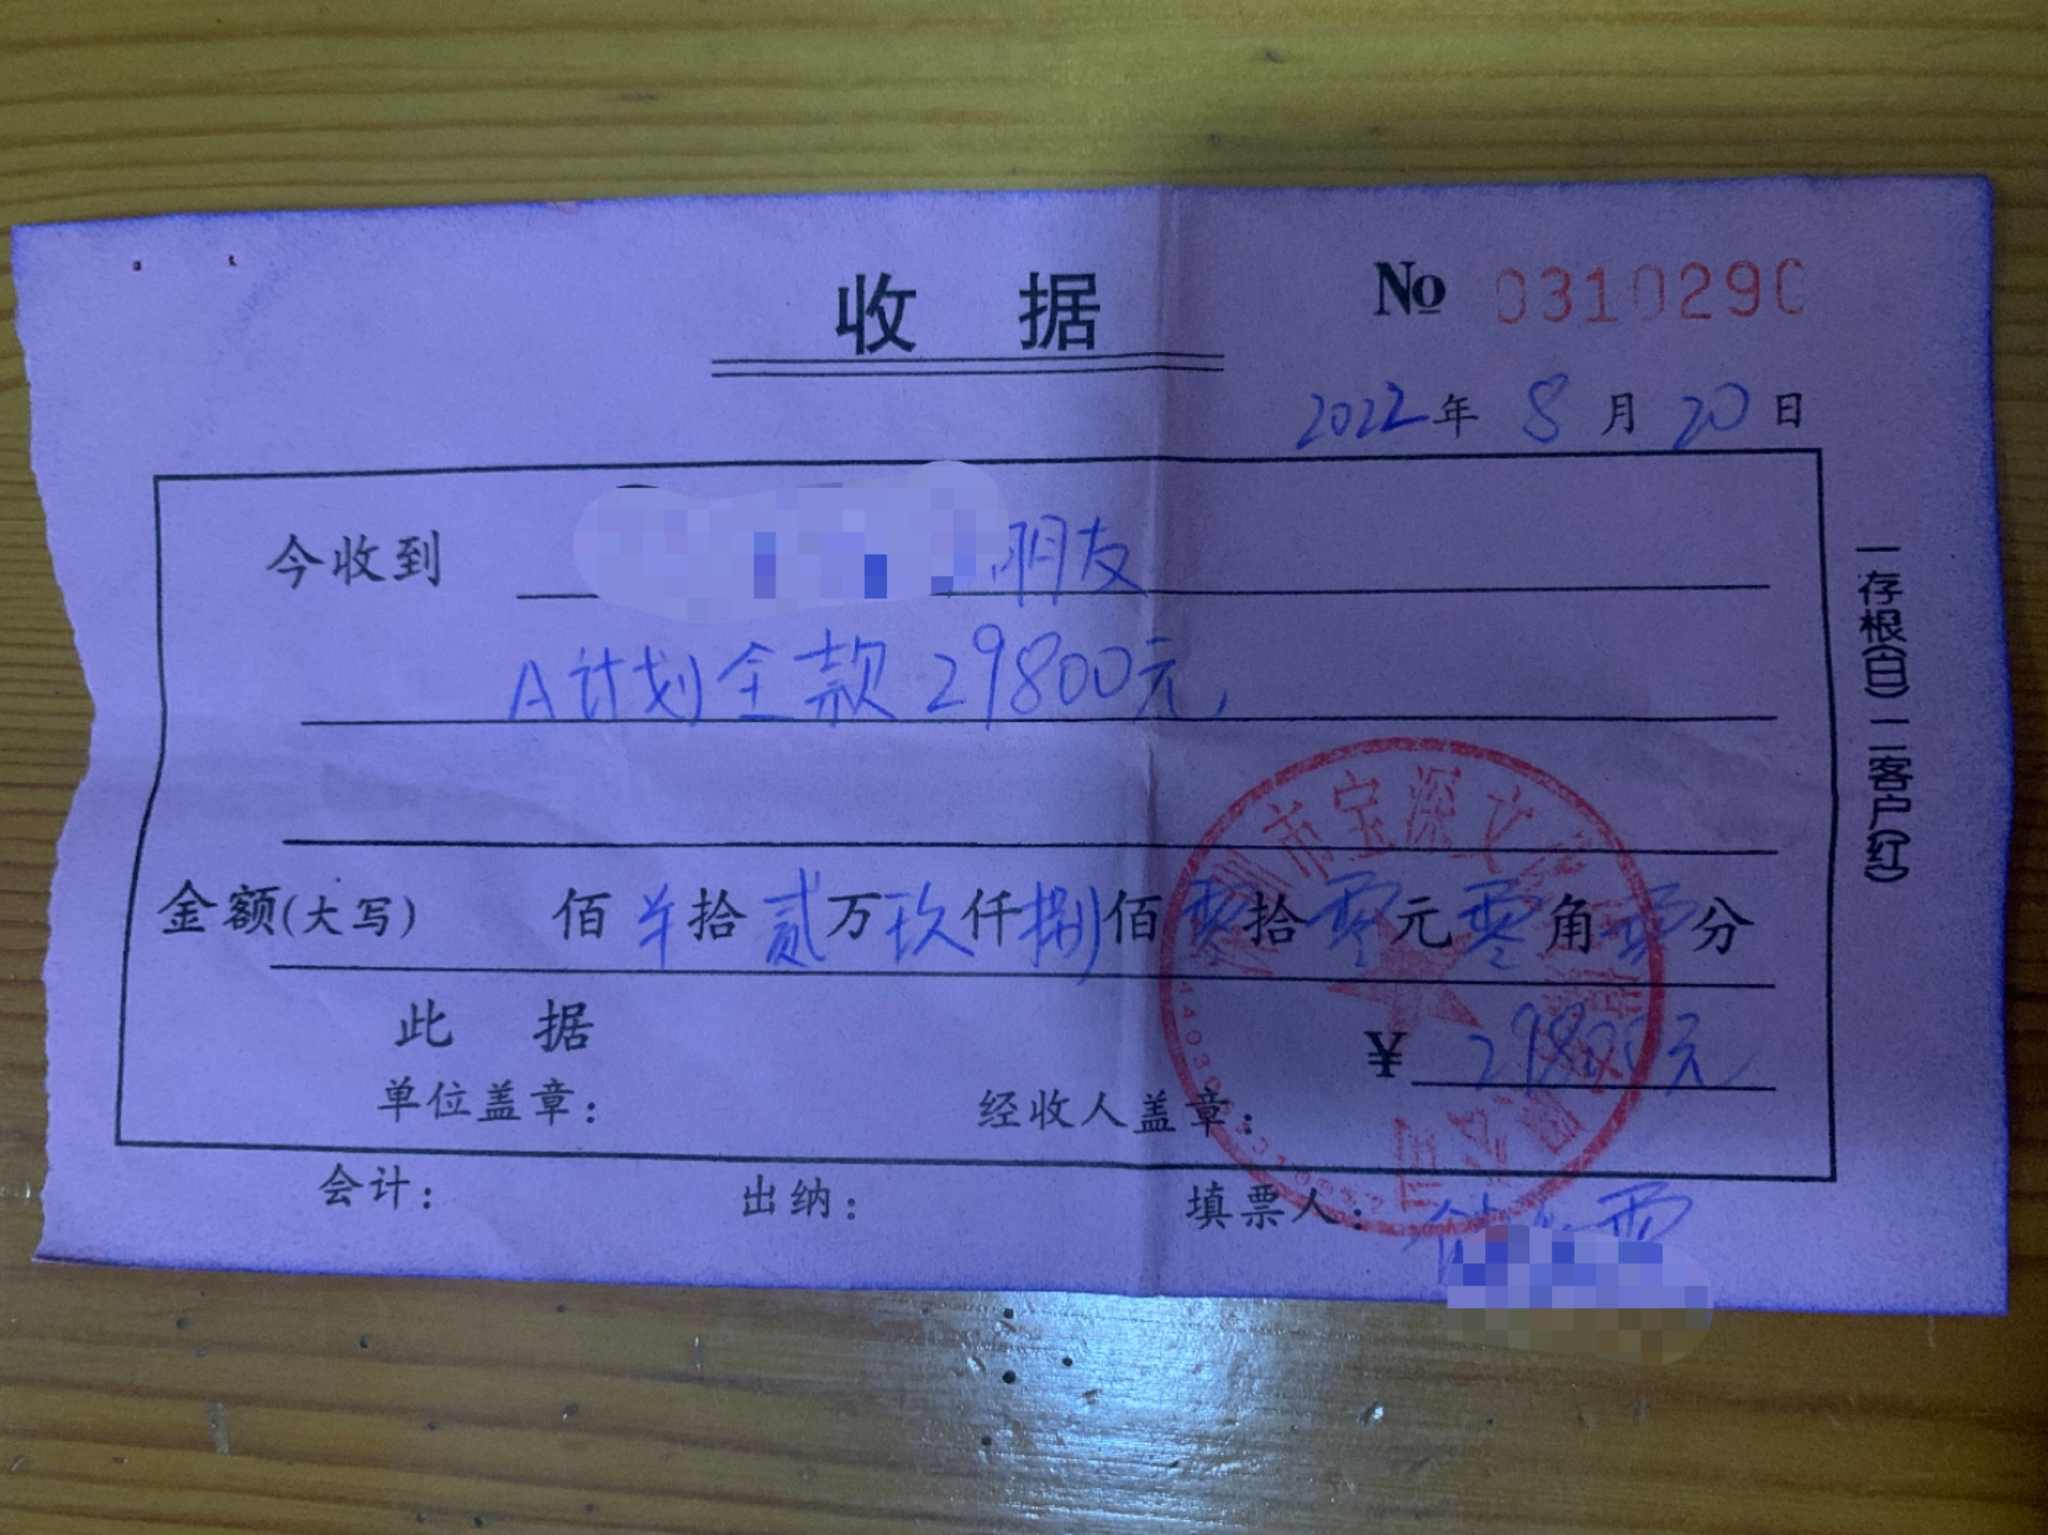 收 据
No 0310290
2022年 8 月 20 日
今收到 朋友
A计划全款29800元,
金额(大写) 佰 ¥ 拾 贰 万 玖 仟 捌 佰 零 拾 零 元 零 角 零 分
此 据
¥ 29800元
单位盖章:
经收人盖章:
会计:
出纳:
填票人:
一存根(白)二客户(红)
圳市宝深文